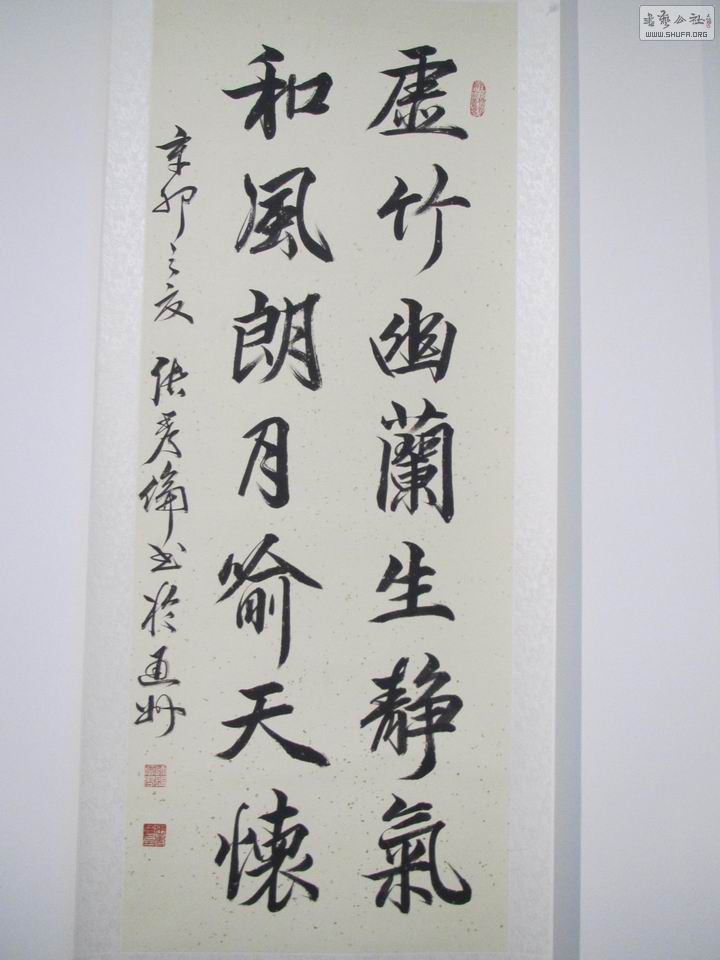 虛竹幽蘭生靜氣
和風朗月喻天懷
辛卯之夏 張秀偉書於通州
書藝公社
WWW.SHUFA.ORG